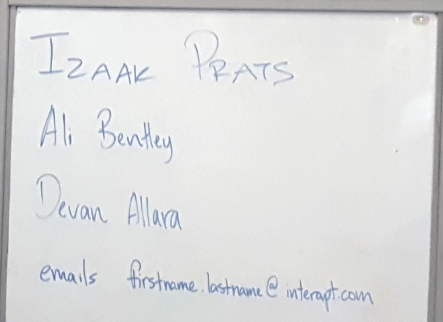 IZAAK PRATS
Ali Bentley
Devan Allara
emails firstname.lastname@interapt.com